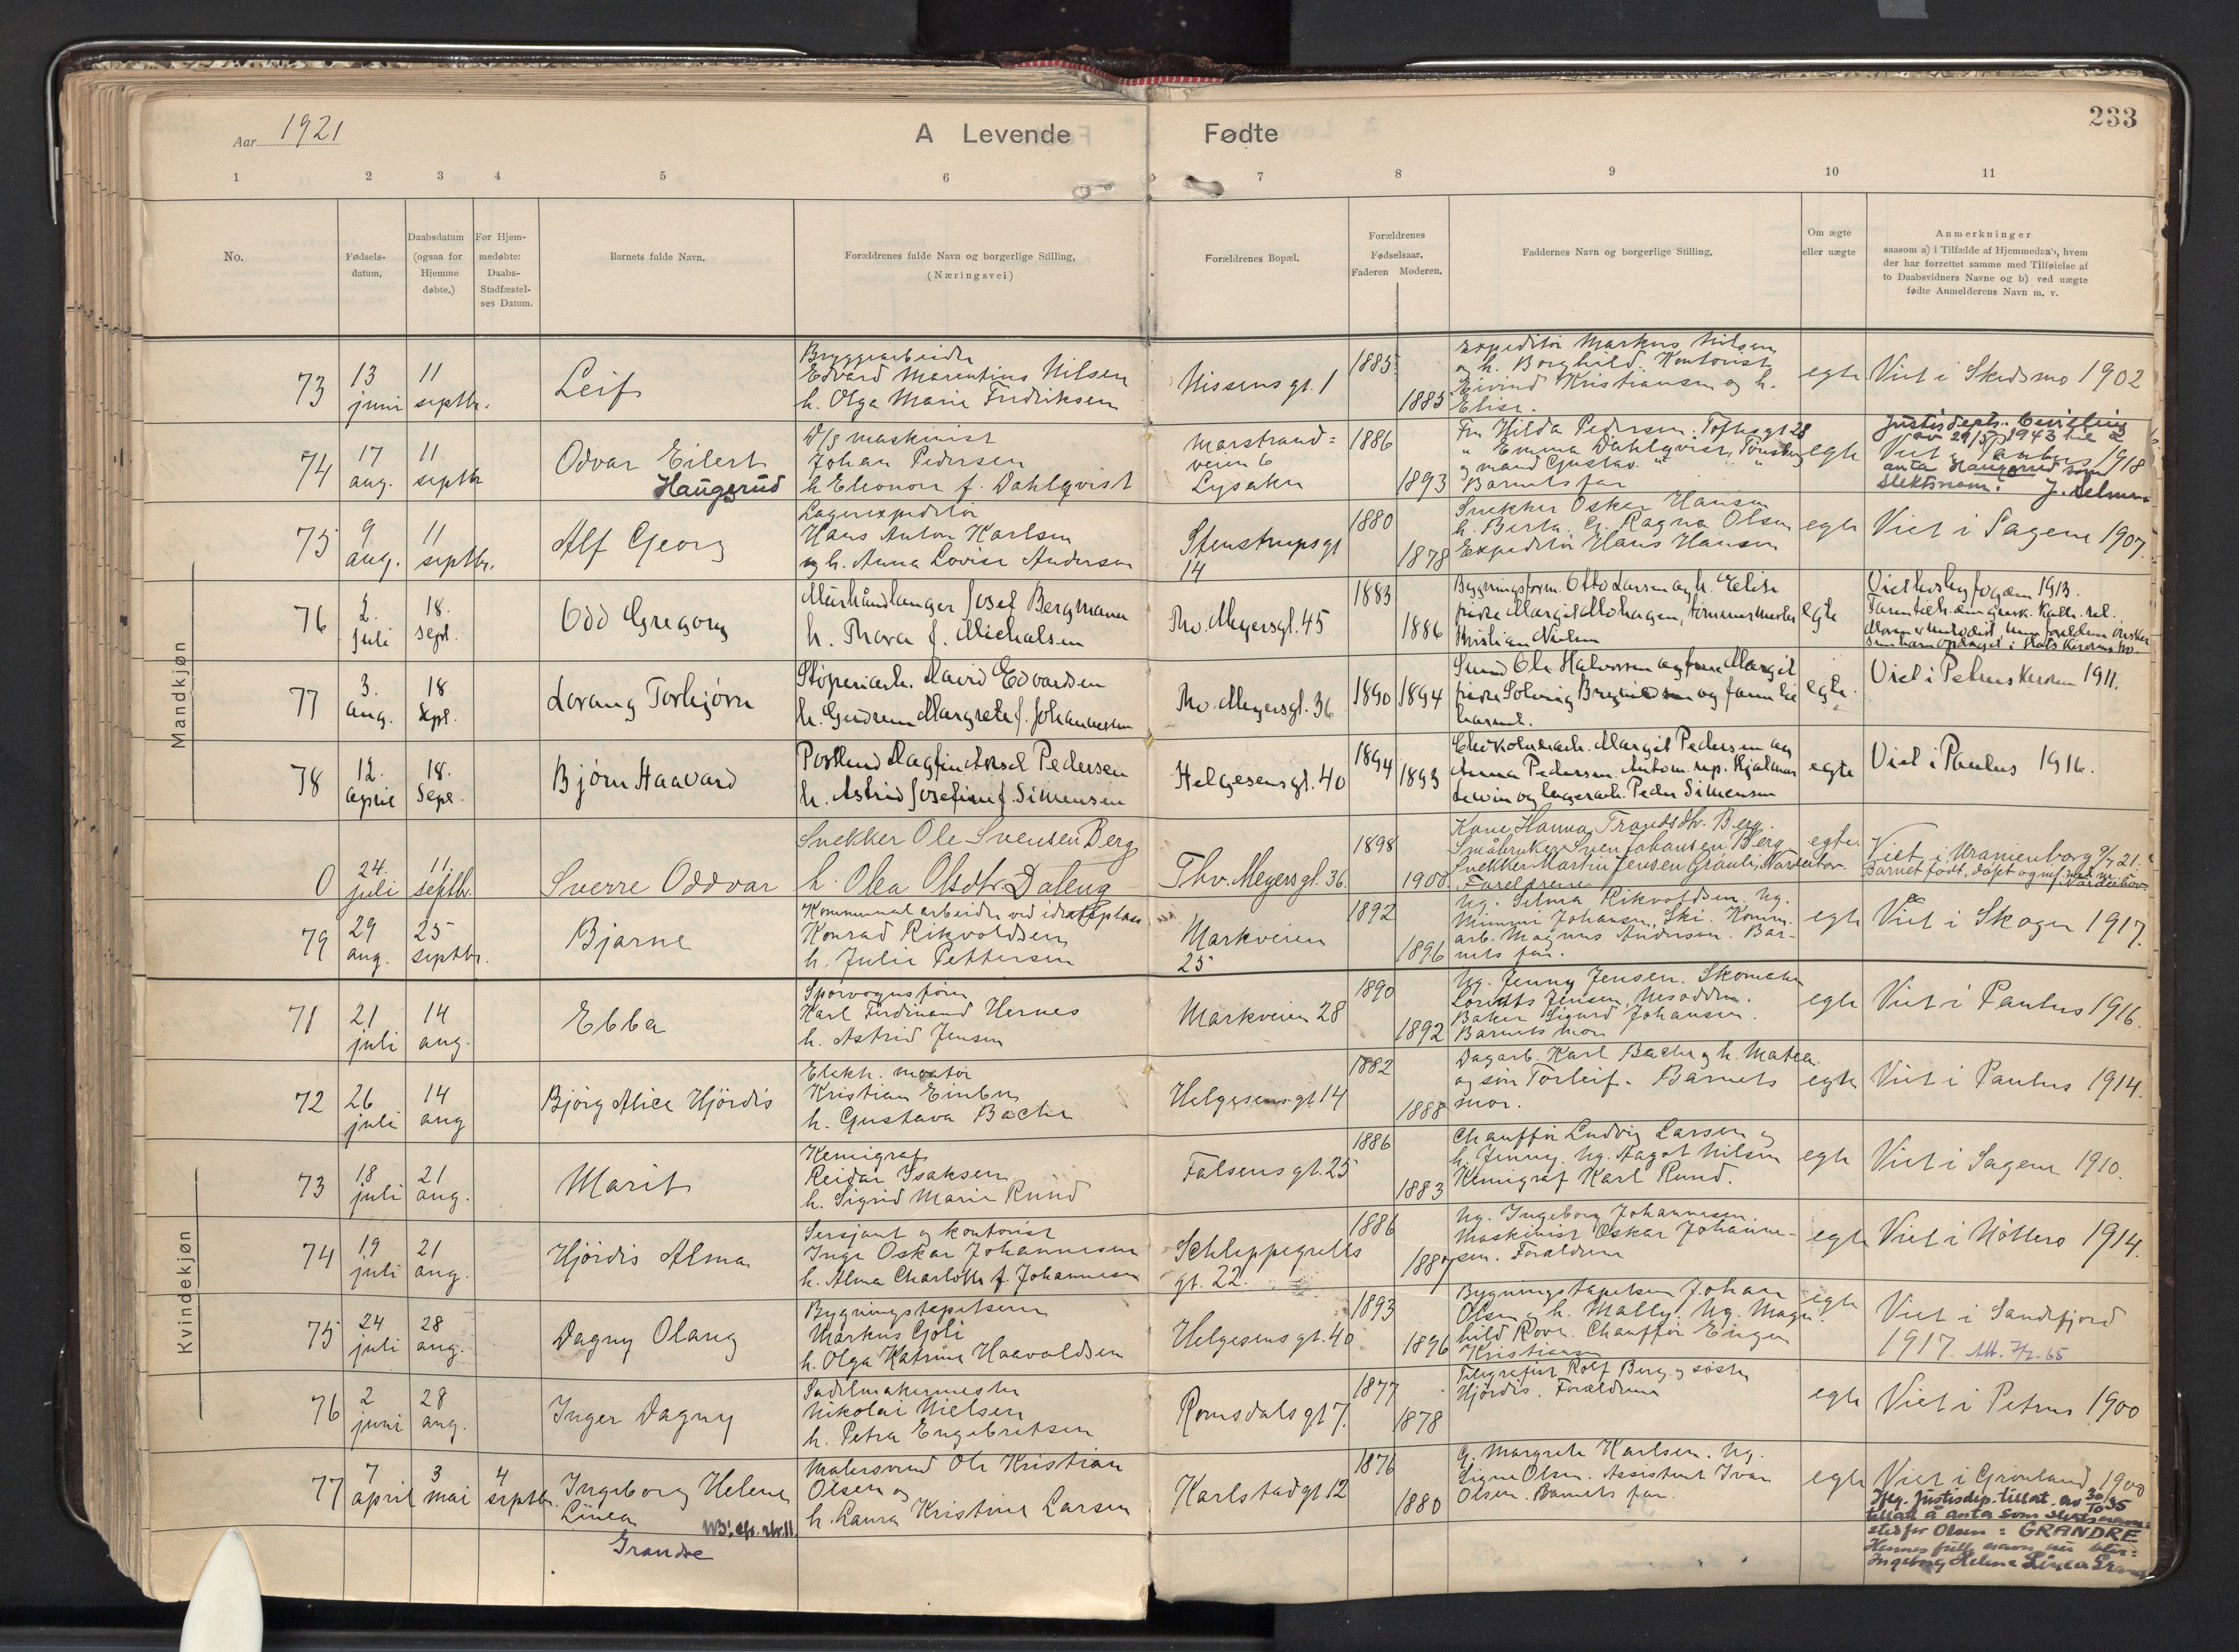 233
Aar 1921
A Levende Fødte
1 2 3 4 5 6 7 8 9 10 11
No.
Fødsels-
datum.
Daabsdatum
(ogsaa for
Hjemme
døbte.)
For Hjem-
medøbte:
Daabs-
Stadfæstel-
ses Datum.
Barnets fulde Navn.
Forældrenes fulde Navn og borgerlige Stilling,
(Næringsvei)
Forældrenes Bopæl.
Forældrenes
Fødselsaar.
Faderen Moderen.
Faddernes Navn og borgerlige Stilling.
Om ægte
eller uægte
Anmerkninger
saasom a) i Tilfælde af Hjemmedaab, hvem
der har forrettet samme med Tilføielse af
to Daabsvidners Navne og b) ved uægte
fødte Anmelderens Navn m. v.
Mandkjøn
73
13
juni
11
septbr.
Leif
Bryggearbeider
Edvard Marentius Nilsen
h. Olga Marie Fredriksen
Nissens gt. 1
1885
1885
Expeditør Markus Nilsen
og h. Borghild. Kontorist
Eivind Kristiansen og h.
Elise.
egte
Viet i Skedsmo 1902
74
17
aug.
11
septbr
Odvar Eilert
Haugerud
D/s maskinist
Johan Pedersen
h. Eleonore f. Dahlqvist
Marstrand=
veien 6
Lysaker
1886
1893
Fru Hilda Pedersen. Toftesgt 28
" Emma Dahlqvist, Tønsberg
og mand Gustav. " "
Barnets far
egte
Justisdepts. bevilling
av 29/5 1943 til å
Viet i Paulus 1918
anta Haugerud som
slektsnavn.
75
9
aug.
11
septbr.
Alf Georg
Lagerexpeditør
Hans Anton Karlsen
og h. Anna Lovise Andersen
Stenstrupsgt
14
1880
1878
Snekker Oskar Hansen
h. Berta. G. Ragna Olsen
Expeditør Hans Hansen
egte
Viet i Sagene 1907.
76
2.
juli
18.
sept.
Odd Gregory
Murhåndlanger Josef Bergmann
h. Thora f. Michalsen
Thv. Meyersgt. 45
1883
1886
Bygningsform. Otto Larsen og h. Elise
frøken Margit Mohagen, tømmermester
Kristian Nielsen
egte
Viet hos byfogden 1913.
77
3.
aug.
18.
Sept.
Lorang Torbjørn
Støperiarb. David Edvardsen
h. Gudrun Margrete f. Johannessen
Thv. Meyersgt. 36
1890 1894
Smed Ole Halvorsen og frue Margit
frøken Solveig Bryn
barnet.
egte.
Viet i Petrus Kirken 1911.
78
12.
april
18.
Sept.
Bjørn Haavard
Postbud Dagfin Aksel Pedersen
h. Astrid Josefine f. Simensen
Helgesensgt. 40
1894
1893
Chokoladearb. Margit Pedersen og
Anna Pedersen. Autom. rep. Hjalmar
og lagerarb. Peder Simensen
egte
Viet i Paulus 1916.
0
24.
juli
11.
septbr.
Sverre Oddvar
Snekker Ole Svensen Berg
h. Olea Olsdtr. Daleng
Thv. Meyersgt. 36.
1898
1900
Kone Hanna Trondsdtr. Berg.
Småbruker Sven Johansen Berg
Snekker Martin Jensen Grauli, Norderhov.
Forældrene
egte.
Viet i Uranienborg 9/7 21.
Barnet født, døpt og
Norderhov.
79
29
aug.
25
septbr.
Bjarne
Kommunal arbeider ved idrætsplass
Konrad Rikvoldsen
h. Julie Pettersen
Markveien
25
1892
1896
Ug. Selma Rikvoldsen. Ug.
Mimmi Johansen, Ski. Komm.
arb. Magnus Andersen. Bar-
nets far.
egte
Viet i Skoger 1917.
Kvindekjøn
71
21
juli
14
aug.
Ebba
Sporvognsfører
Karl Ferdinand Hernes
h. Astrid Jensen
Markveien 28
1890
1892
Ug. Jenny Jensen. Skomaker
Lorents Jensen, Nesodden.
Baker Sigurd Johansen.
Barnets mor
egte
Viet i Paulus 1916.
72
26
juli
14
aug
Bjørg Alice Hjördis
Elektr. montør
Kristian Einbu
h. Gustava Bache
Helgesensgt. 14
1882
1888
Dagarb. Karl Bache og h. Matea.
og søn Torleif. Barnets
mor.
egte
Viet i Paulus 1914.
73
18
juli
21
aug.
Marit
Kemigraf
Reidar Isaksen
h. Sigrid Marie Rund
Falsens gt. 25
1886
1883
Chauffør Ludvig Larsen og
h. Jenny. Ug. Aagot Nilsen
Kemigraf Karl Rund.
egte
Viet i Sagene 1910.
74
19
juli
21
aug.
Hjördis Alma
Sersjant og kontorist
Inge Oskar Johannesen
h. Alma Charlotte f. Johannesen
Schleppegrells
gt. 22.
1886
1887
Ug. Ingeborg Johannesen.
Maskinist Oskar Johanne-
sen. Forældrene
egte
Viet i Nøtterø 1914.
75
24
juli
28
aug.
Dagny Olaug
Bygningstapetserer
Markus Goli
h. Olga Katrine Haavoldsen
Helgesens gt. 40
1893
1896
Bygningstapetserer Johan
Olsen og h. Mally. Ug. Magn-
hild Rove. Chauffør Eugen
Kristiansen
egte
Viet i Sandefjord
1917.
76
2
juni
28
aug.
Inger Dagny
Sadelmakermester
Nikolai Nielsen
h. Petra Engebretsen
Romsdals gt 7.
1877
1878
Telegrafist Rolf Berg og søster
Hjördis. Forældrene
egte
Viet i Petrus 1900
77
7
april
3
mai
4
septbr.
Ingeborg Helene
Linea
NB! cfr. rbr. 11
Grandre
Malersvend Ole Kristian
Olsen og
h. Laura Kristine Larsen
Karlstadgt 12
1876
1880
G. Margrete Karlsen. Ug.
Signe Olsen. Assistent Ivar
Olsen. Barnets far.
egte
Viet i Grønland 1900
Ifløg. Justisdep. tillat. av 30/10 35
tillatt å anta som slektsnavn
sted for Olsen = GRANDRE
Hennes fulle navn nu blir:
Ingeborg Helene Linea Gran